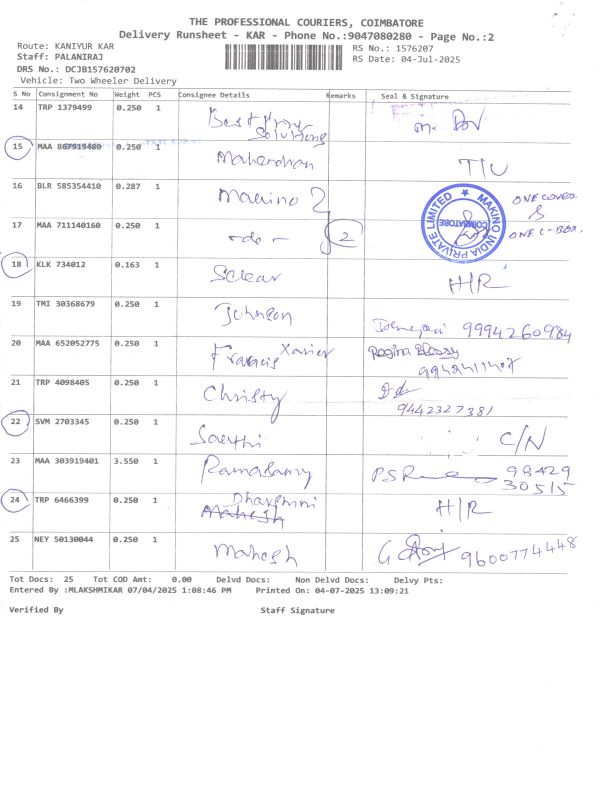 THE PROFESSIONAL COURIERS, COIMBATORE
Delivery Runsheet - KAR - Phone No.:9047080280 - Page No.:2
Route: KANIYUR KAR
Staff: PALANIRAJ
DRS No.: DCJB157620702
Vehicle: Two Wheeler Delivery
RS No.: 1576207
RS Date: 04-Jul-2025
S No Consignment No Weight PCS Consignee Details Remarks Seal & Signature
14 TRP 1379499 0.250 1 Solutions
15 MAA 867919480 0.250 1 Mahendran T/U
16 BLR 585354410 0.287 1 Makino 2 ONE COVER
&
ONE C-BOX.
MAKINO INDIA PRIVATE LIMITED ★ COIMBATORE
17 MAA 711140160 0.250 1 -do- 2
18 KLK 734012 0.163 1 Sclear H/R
19 TMI 30368679 0.250 1 Johnson 9994260984
20 MAA 652052775 0.250 1 Francis Xavier Regina
21 TRP 4098405 0.250 1 Christy
9442327381
22 SVM 2703345 0.250 1 Saerthi C/N
23 MAA 303919401 3.550 1 Ramasamy PSR 98429
30515
24 TRP 6466399 0.250 1 Dharshini H/R
Mahesh
25 NEY 50130044 0.250 1 Mahesh 9600774448
Tot Docs: 25 Tot COD Amt: 0.00 Delvd Docs: Non Delvd Docs: Delvy Pts:
Entered By :MLAKSHMIKAR 07/04/2025 1:08:46 PM Printed On: 04-07-2025 13:09:21
Verified By Staff Signature